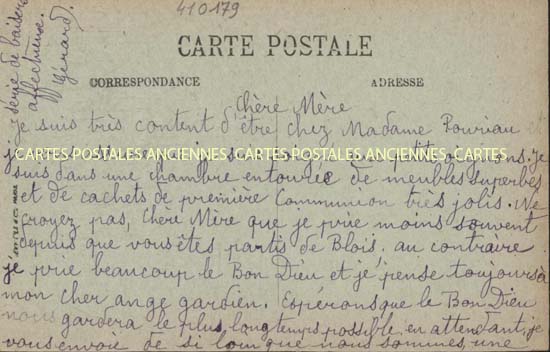 410179
CARTE POSTALE
CORRESPONDANCE
ADRESSE
Chère Mère
Je suis très content d'être chez Madame Pouriau et
CARTES POSTALES ANCIENNES CARTES POSTALES ANCIENNES CARTES
suis dans une chambre entourée de meubles superbes
et de cachets de première Communion très jolis. Ne
croyez pas, Chère Mère que je prie moins souvent
depuis que vous êtes partis de Blois. au contraire
je prie beaucoup le Bon Dieu et je pense toujours à
mon cher ange gardien. Espérons que le Bon Dieu
nous gardera le plus longtemps possible, en attendant je
vous envoie de si loin que nous sommes, une
série de baisers
affectueux.
Gérard.